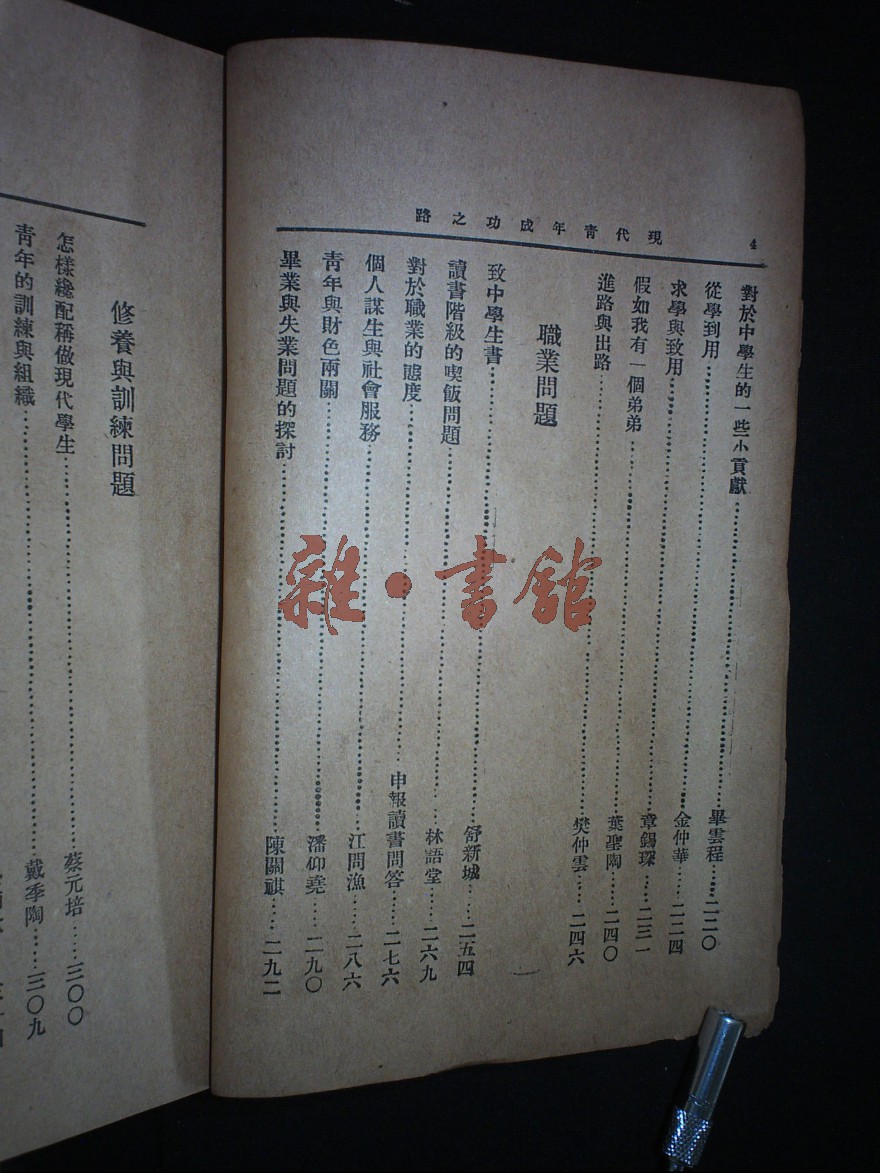 現代青年成功之路
4
對於中學生的一些小貢獻……畢雲程……二二〇
從學到用……金仲華……二二四
求學與致用……章錫琛……二三一
假如我有一個弟弟……葉聖陶……二四〇
進路與出路……樊仲雲……二四六
職業問題
致中學生書……舒新城……二五四
讀書階級的喫飯問題……林語堂……二六九
對於職業的態度……申報讀書問答……二七六
個人謀生與社會服務……江問漁……二八六
青年與財色兩關……潘仰堯……二九〇
畢業與失業問題的探討……陳關祺……二九二
修養與訓練問題
怎樣纔配稱做現代學生……蔡元培……三〇〇
青年的訓練與組織……戴季陶……三〇九
雜·書館